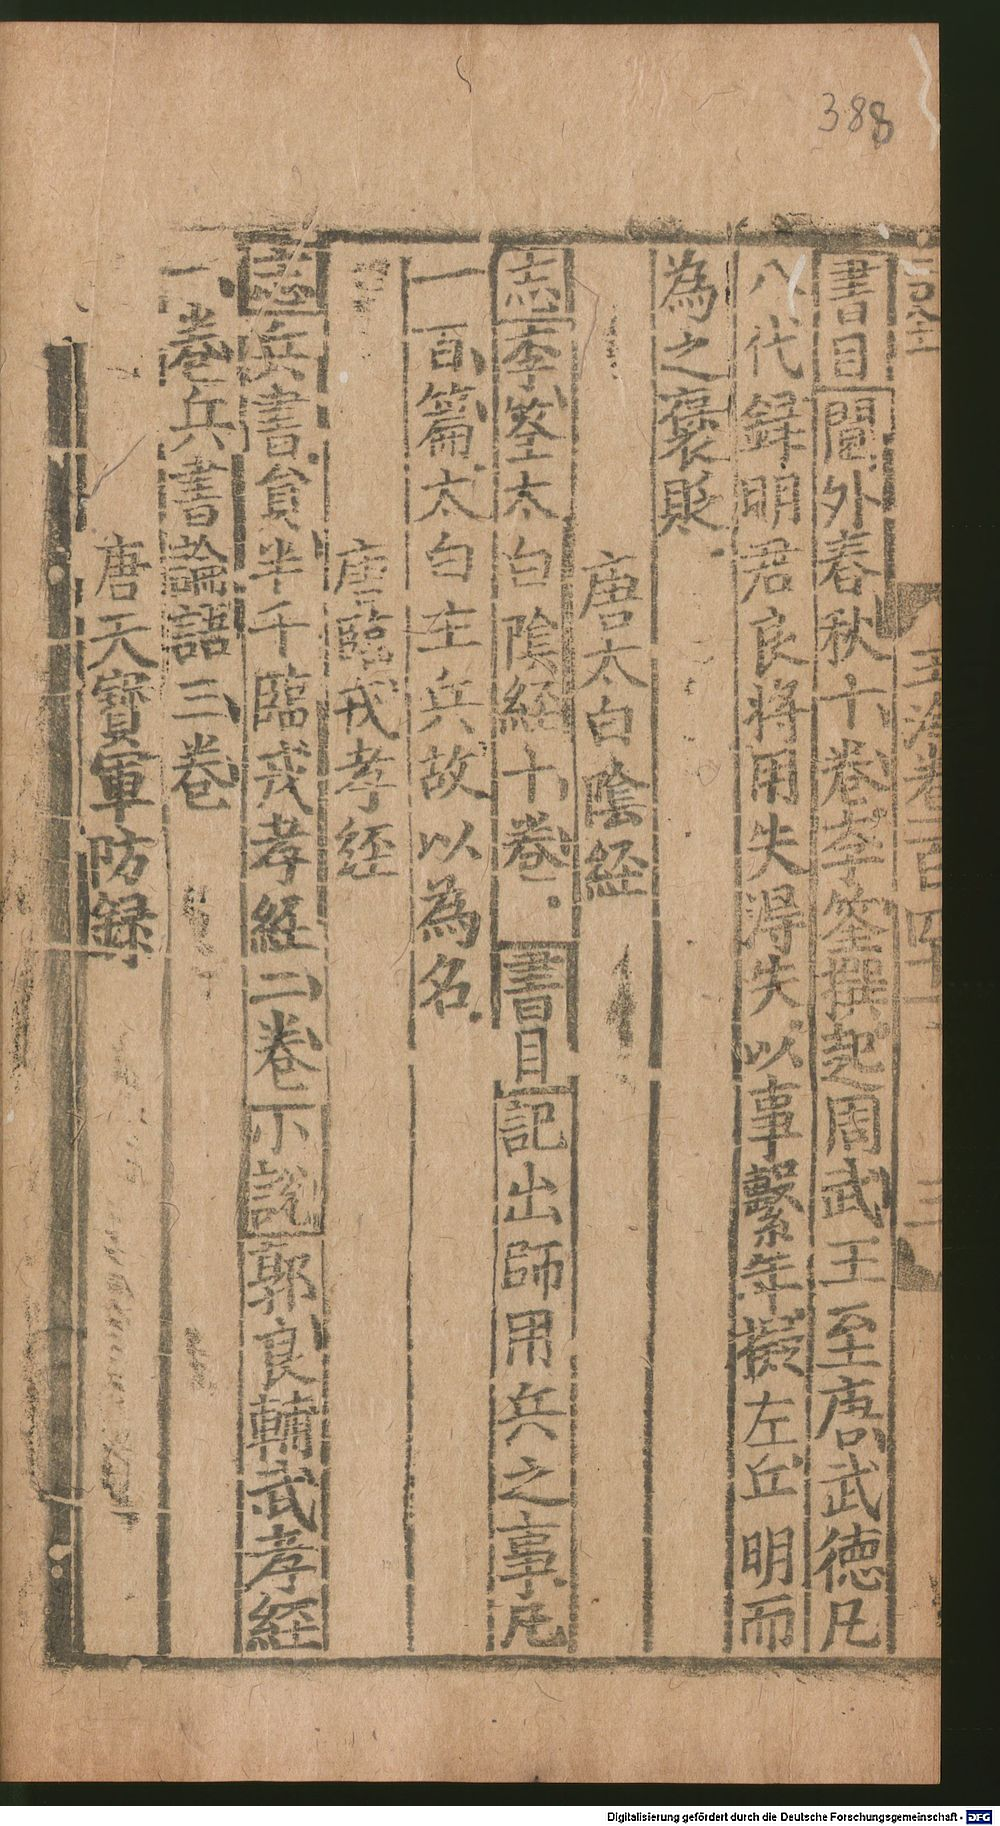 388
玉海卷百四十
書目閫外春秋十卷李筌撰起周武王至唐武德凡
八代録明君良将用失得失以事繫年擬左丘明而
為之褒貶
唐太白陰経
志李筌太白陰経十卷書目記出師用兵之事凡
一百篇太白主兵故以為名
唐臨戎孝経
志兵書貟半千臨戎孝経二卷小說郭良輔武孝経
一卷兵書論語三卷
唐天寶軍防録
Digitalisierung gefördert durch die Deutsche Forschungsgemeinschaft - DFG